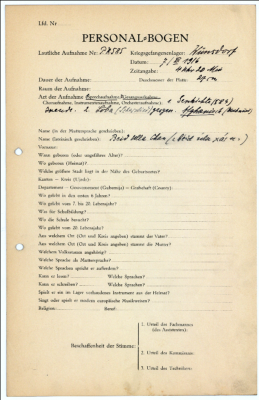 Lfd. Nr.
PERSONAL=BOGEN
Lautliche Aufnahme Nr.: PK585 Kriegsgefangenenlager: Wünsdorf
Datum: 7/VI 1916
Zeitangabe: 4 Uhr 20 Min
Dauer der Aufnahme: Durchmesser der Platte: 27 cm
Raum der Aufnahme:
Art der Aufnahme
(Choraufnahme, Instrumentenaufnahme, Orchesteraufnahme):
2.
Name (in der Muttersprache geschrieben):
Name (lateinisch geschrieben):
Vorname:
Wann geboren (oder ungefähres Alter)?
Wo geboren (Heimat)?
Welche größere Stadt liegt in der Nähe des Geburtsortes?
Kanton — Kreis (Ujezd):
Department — Gouvernement (Gubernija) — Grafschaft (County):
Wo gelebt in den ersten 6 Jahren?
Wo gelebt vom 7. bis 20. Lebensjahr?
Was für Schulbildung?
Wo die Schule besucht?
Wo gelebt vom 20. Lebensjahr?
Aus welchem Ort (Ort und Kreis angeben) stammt der Vater?
Aus welchem Ort (Ort und Kreis angeben) stammt die Mutter?
Welchem Volksstamm angehörig?
Welche Sprache als Muttersprache?
Welche Sprachen spricht er außerdem?
Kann er lesen? Welche Sprachen?
Kann er schreiben? Welche Sprachen?
Spielt er ein im Lager vorhandenes Instrument aus der Heimat?
Singt oder spielt er modern europäische Musikweisen?
Religion: Beruf:
Beschaffenheit der Stimme:
1. Urteil des Fachmannes
(des Assistenten):
2. Urteil des Kommissars:
3. Urteil des Tierhelfers: